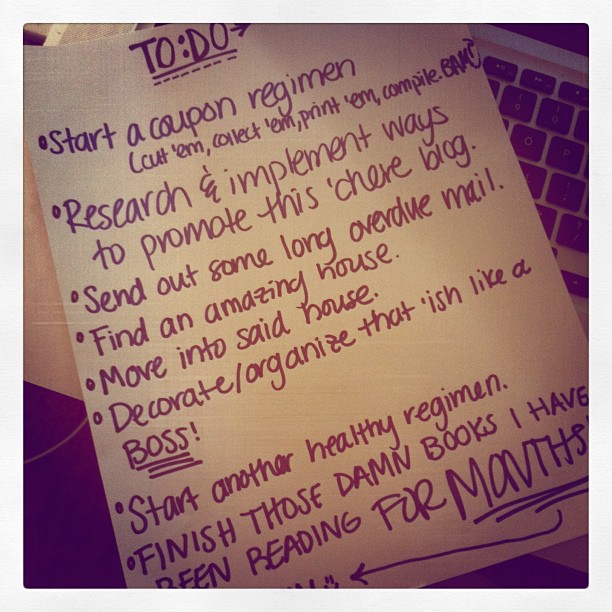 TO:DO→
•Start a coupon regimen
(cut 'em, collect 'em, print 'em, compile. BAM!)
•Research & implement ways
to promote this 'chere blog.
•Send out some long overdue mail.
•Find an amazing house.
•Move into said house.
•Decorate/organize that 'ish like a
BOSS!
•Start another healthy regimen.
•FINISH THOSE DAMN BOOKS I HAVE
BEEN READING FOR MONTHS!